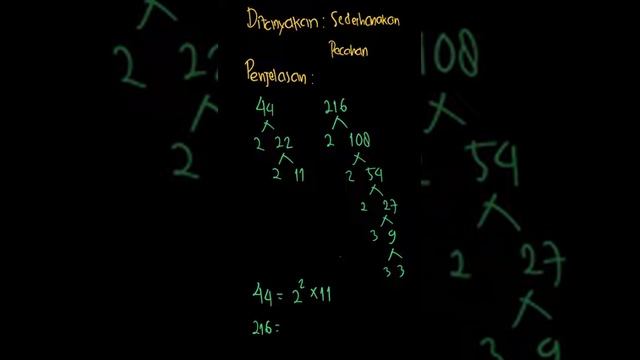 Ditanyakan : Sederhanakan
Pecahan
Penjelasan :
44 216
2 22 2 108
2 11 2 54
2 27
3 9
3 3
44 = 2² × 11
216 =